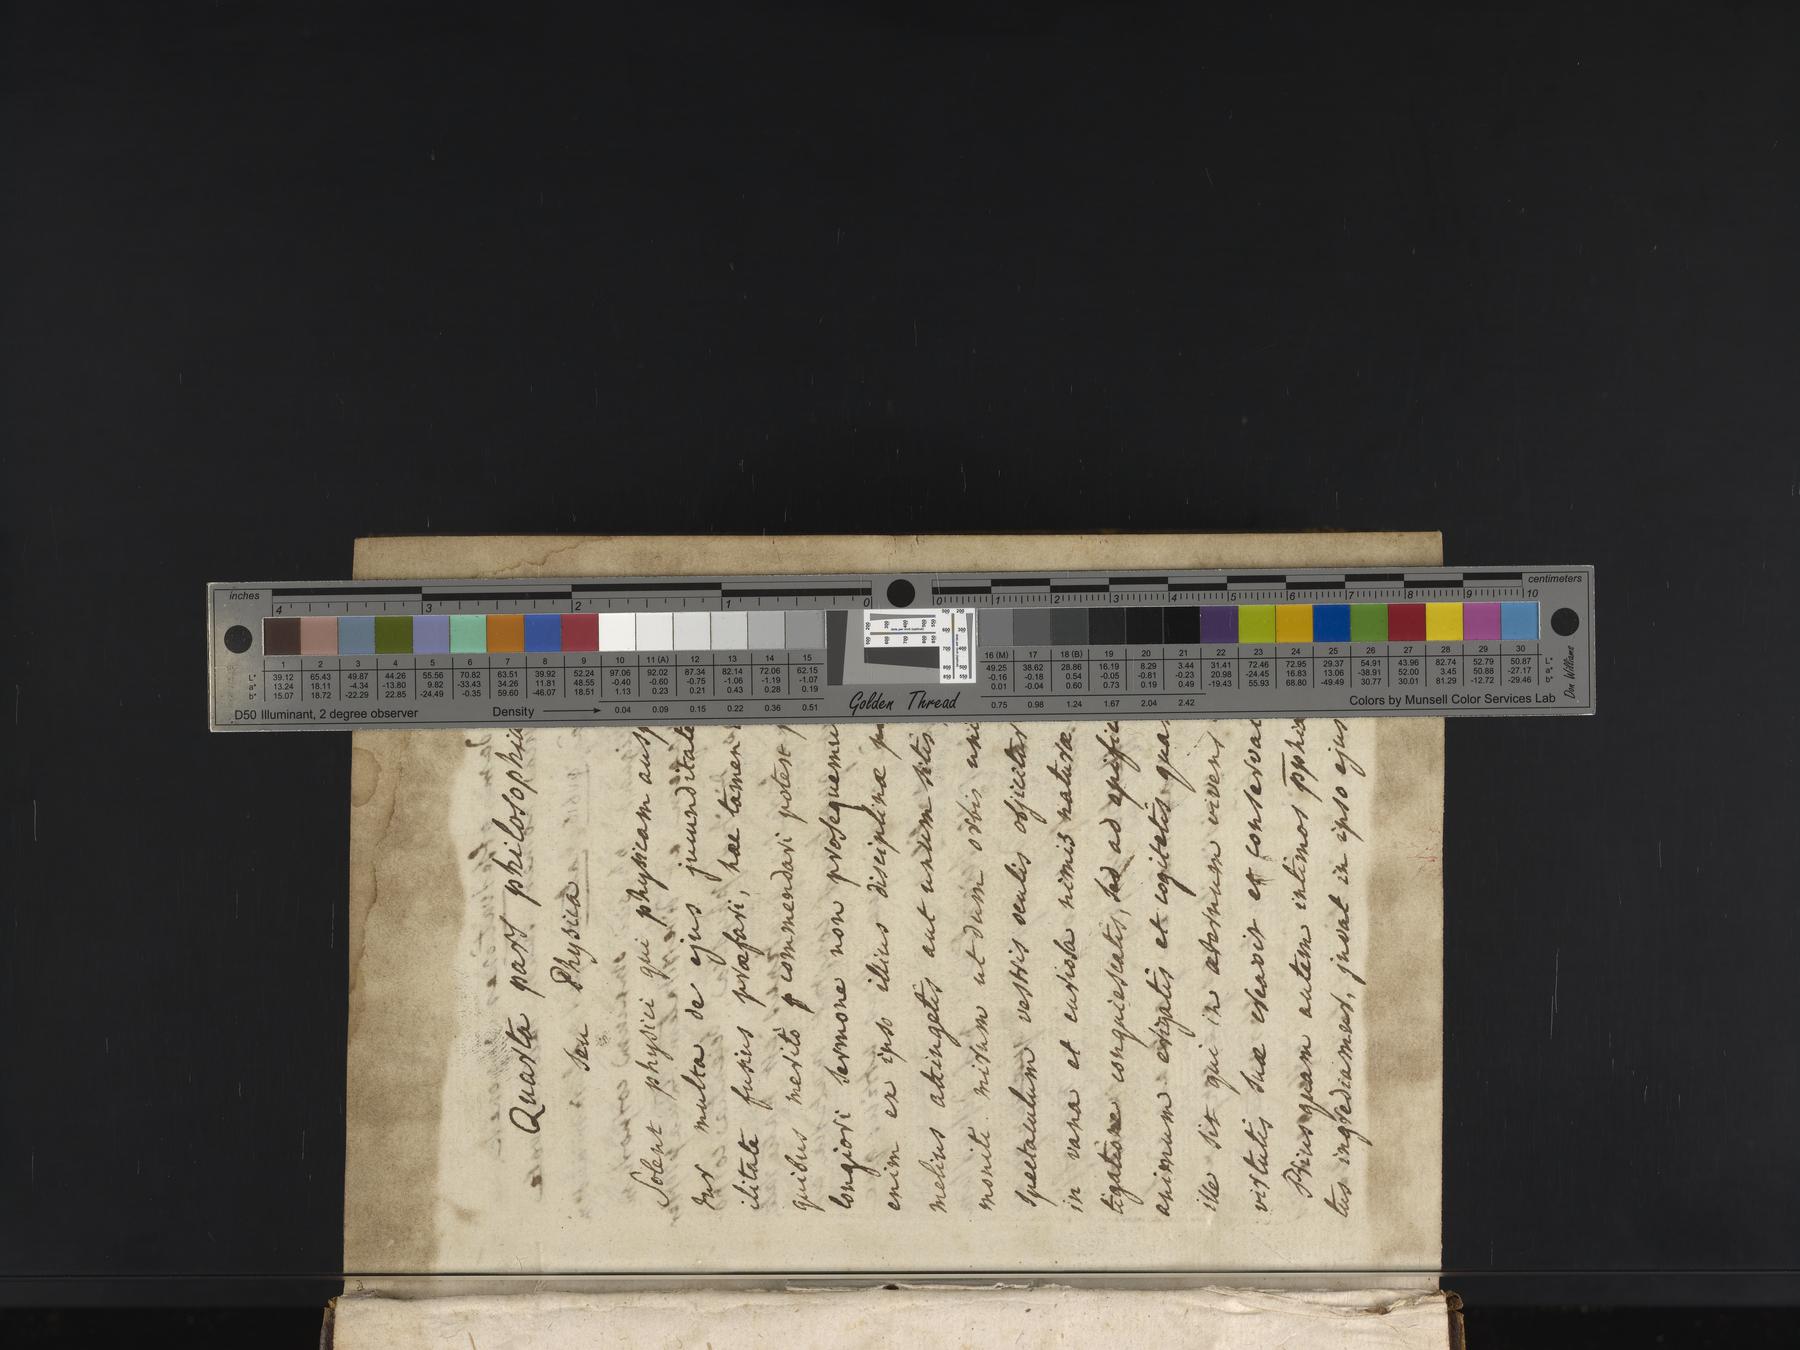 inches
centimeters
4 3 2 1 0 0 1 2 3 4 5 6 7 8 9 10
1 2 3 4 5 6 7 8 9 10 11 (A) 12 13 14 15 16 (M) 17 18 (B) 19 20 21 22 23 24 25 26 27 28 29 30
L* 39.12 65.43 49.87 44.26 55.56 70.82 63.51 39.92 52.24 97.06 92.02 87.34 82.14 72.06 62.15 49.25 38.62 28.86 16.19 8.29 3.44 31.41 72.46 72.95 29.37 54.91 43.96 82.74 52.79 50.87 L*
a* 13.24 18.11 -4.34 -13.80 9.82 -33.43 34.26 11.81 48.55 -0.40 -0.60 -0.75 -1.06 -1.19 -1.07 -0.16 -0.18 0.54 -0.05 -0.81 -0.23 20.98 -24.45 16.83 13.06 -38.91 52.00 3.45 50.88 -27.17 a*
b* 15.07 18.72 -22.29 22.85 -24.49 -0.35 59.60 -46.07 18.51 1.13 0.23 0.21 0.43 0.28 0.19 0.01 -0.04 0.60 0.73 0.19 0.49 -19.43 55.93 68.80 -49.49 30.77 30.01 81.29 -12.72 -29.46 b*
D50 Illuminant, 2 degree observer
Density 0.04 0.09 0.15 0.22 0.36 0.51 0.75 0.98 1.24 1.67 2.04 2.42
Golden Thread
Colors by Munsell Color Services Lab
Don Williams
Quarta pars philosophiæ
seu Physica
Solent physici qui physicam ausp
tur multa de ejus jucunditate
ilitate fusius præfari, hæc tamen
quibus merito commendari potest
longiori sermone non prosequemur
enim ex ipso illius disciplinæ
melius attingetis aut unum sitis
moniti nimirum ut dum orbis uni
spectaculum vestris oculis objicitur
in vana et curiosa nimis naturæ
tigatione conquiescatis, sed ad opific
animum erigatis et cogitetis qua
ille sit qui in æternum vivens
virtutis suæ creavit et conservat
Priusquam autem intimos pphiæ
tus ingrediamur, juvat in ipso ejus